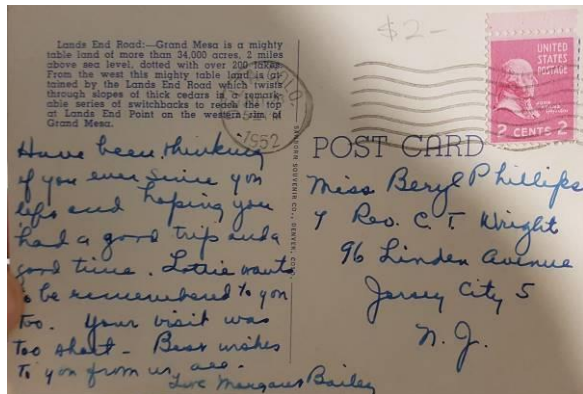 $2-
Lands End Road:—Grand Mesa is a mighty
table land of more than 34,000 acres, 2 miles
above sea level, dotted with over 200 lakes.
From the west this mighty table land is at-
tained by the Lands End Road which twists
through slopes of thick cedars in a remark-
able series of switchbacks to reach the top
at Lands End Point on the western rim of
Grand Mesa.
1952
UNITED
STATES
POSTAGE
2 CENTS 2
SANBORN SOUVENIR CO., DENVER, COLO.
POST CARD
Have been thinking
of you ever since you
left and hoping you
had a good trip and a
good time. Lottie wants
to be remembered to you
too. Your visit was
too short - Best wishes
to you from us all.
Love Margaret Bailey
Miss Beryl Phillips
% Rev. C. T. Wright
96 Linden Avenue
Jersey City 5
N. J.